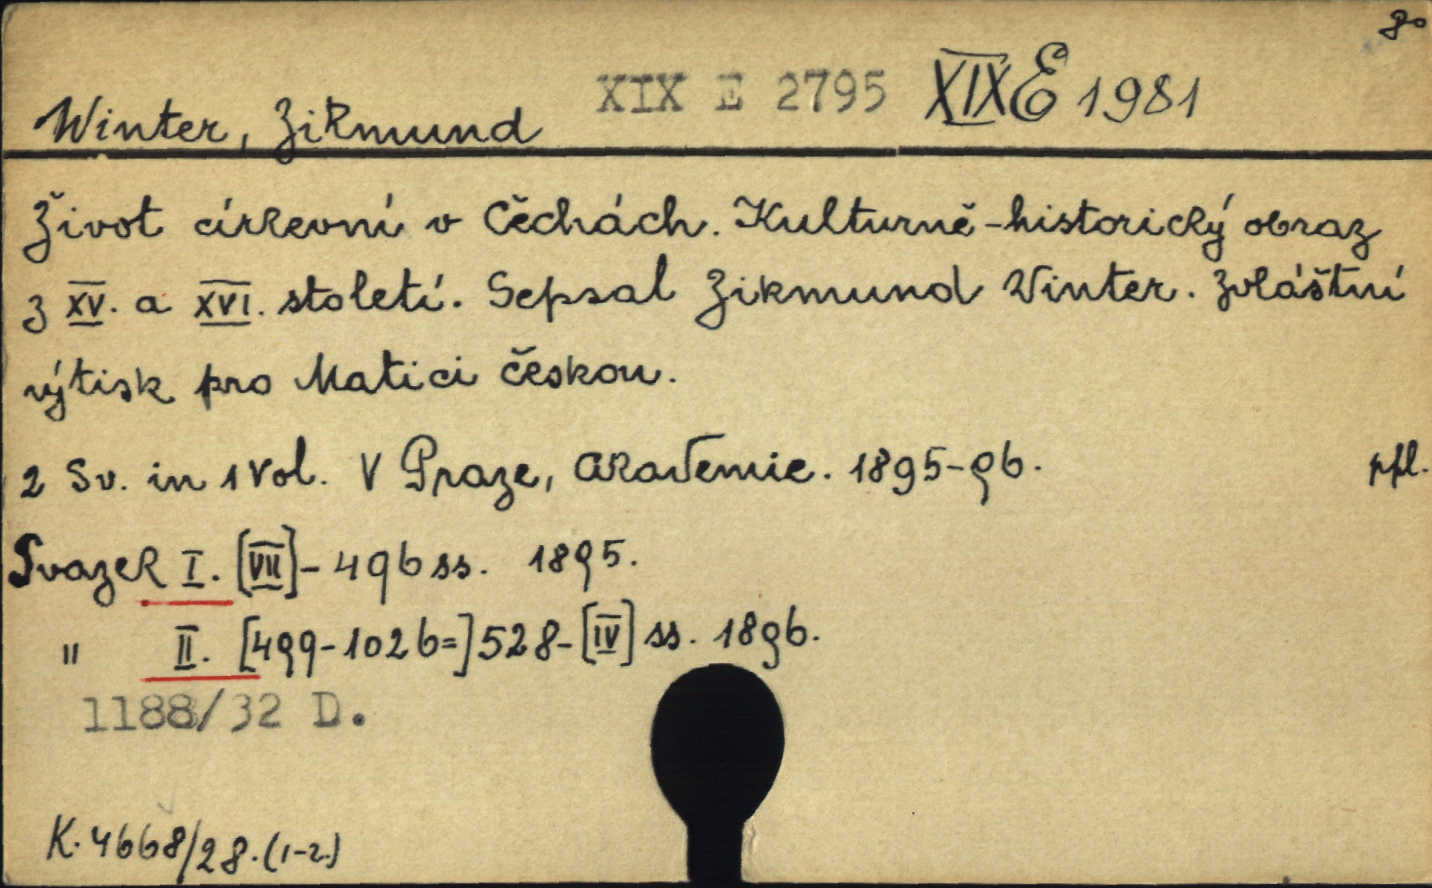 8°
XIX E 2795 XIX E 1981
Winter, Zikmund
Život církevní v Čechách. Kulturně-historický obraz
z XV. a XVI. století. Sepsal Zikmund Winter. Zvláštní
výtisk pro Matici českou.
2 Sv. in 1 Vol. V Praze, Akademie. 1895-96. ppl.
Svazek I. [VII]-496 ss. 1895.
" II. [499-1026=]528-[IV] ss. 1896.
1188/32 D.
K. 4668/28. (1-2.)